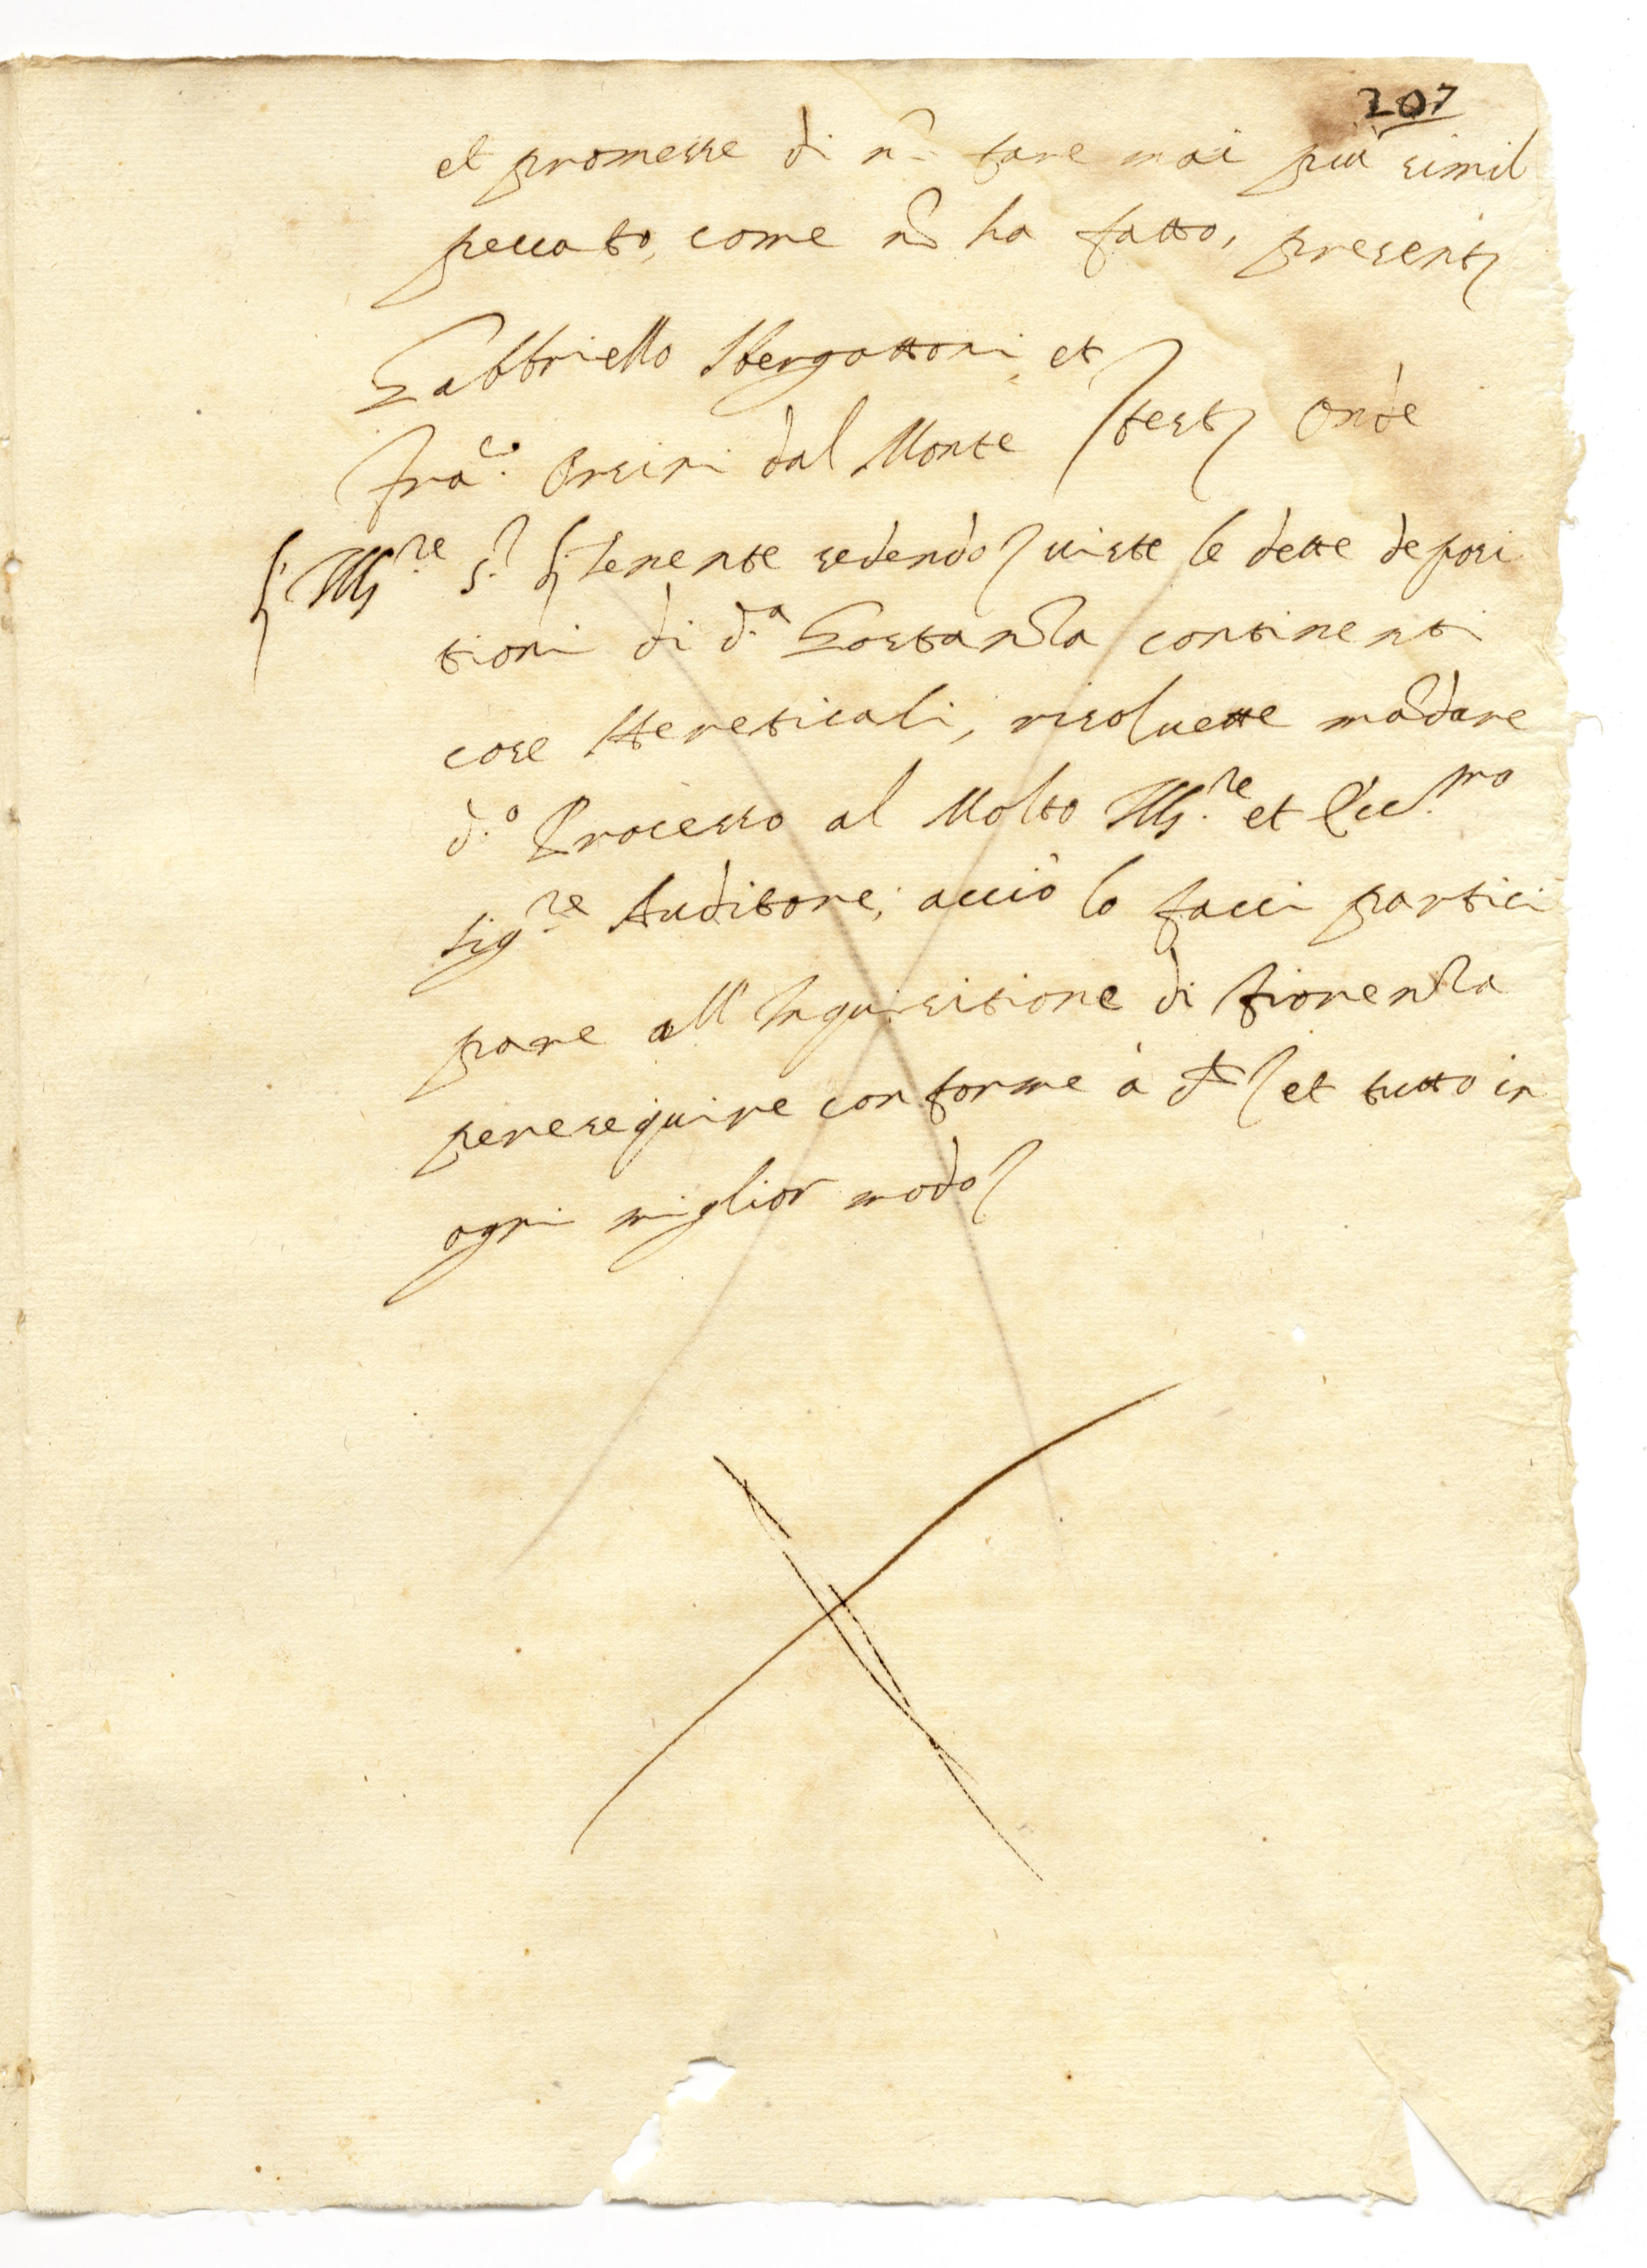 207
et promesse di nō fare mai più simil
peccato, come nō ha fatto, present
Gabbriello Hergattoni et
Fra.co Orsini dal Monte test Onde
Ill.re s. tenente sedendo viste le dette deposi
tioni di d.a Gostanza continenti
cose Hereticali, risoluette mādare
d.o Processo al Molto Ill.re et Ecc.mo
Sig.re Auditore; acciò lo facci partici
pare all' Inquisitione di Fiorenza
per eseguire conforme à et tutto in
ogni miglior modo